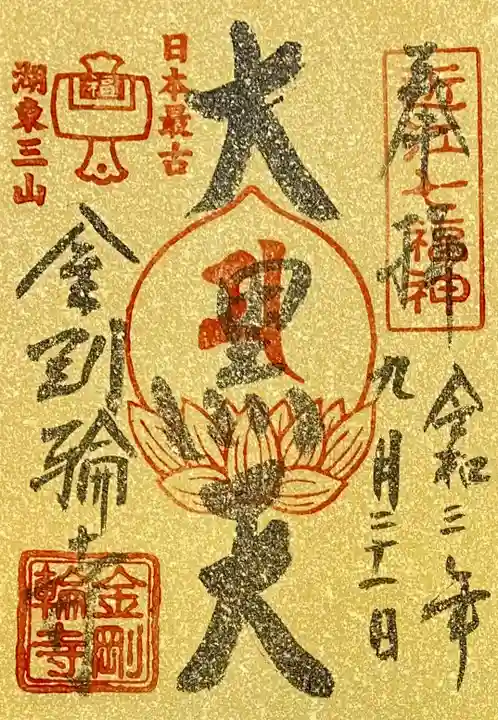 奉拝
近江七福神
令和三年
九月二十一日
大黒天
日本最古
湖東三山
福
金剛輪寺
金剛
輪寺